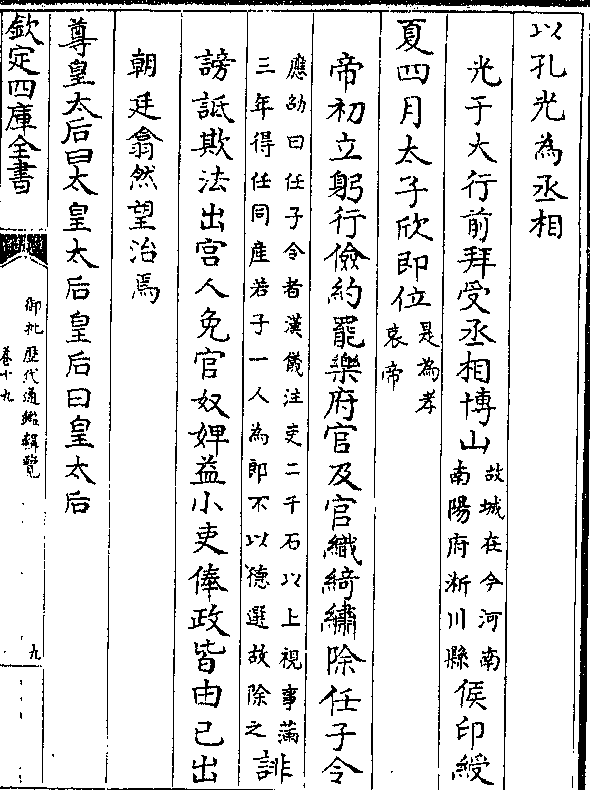 以孔光為丞相
光于大行前拜受丞相博山故城在今河南南陽府淅川縣侯印綬
夏四月太子欣即位是為孝哀帝
帝初立躬行儉約罷樂府官及官織綺繡除任子令
應劭曰任子令者漢儀注吏二千石以上視事滿三年得任同産若子一人為郎不以德選故除之誹
謗詆欺法出宫人免官奴婢益小吏俸政皆由己出
朝廷翕然望治焉
尊皇太后曰太皇太后皇后曰皇太后
欽定四庫全書
御批歷代通鑑輯覽
卷十九
九